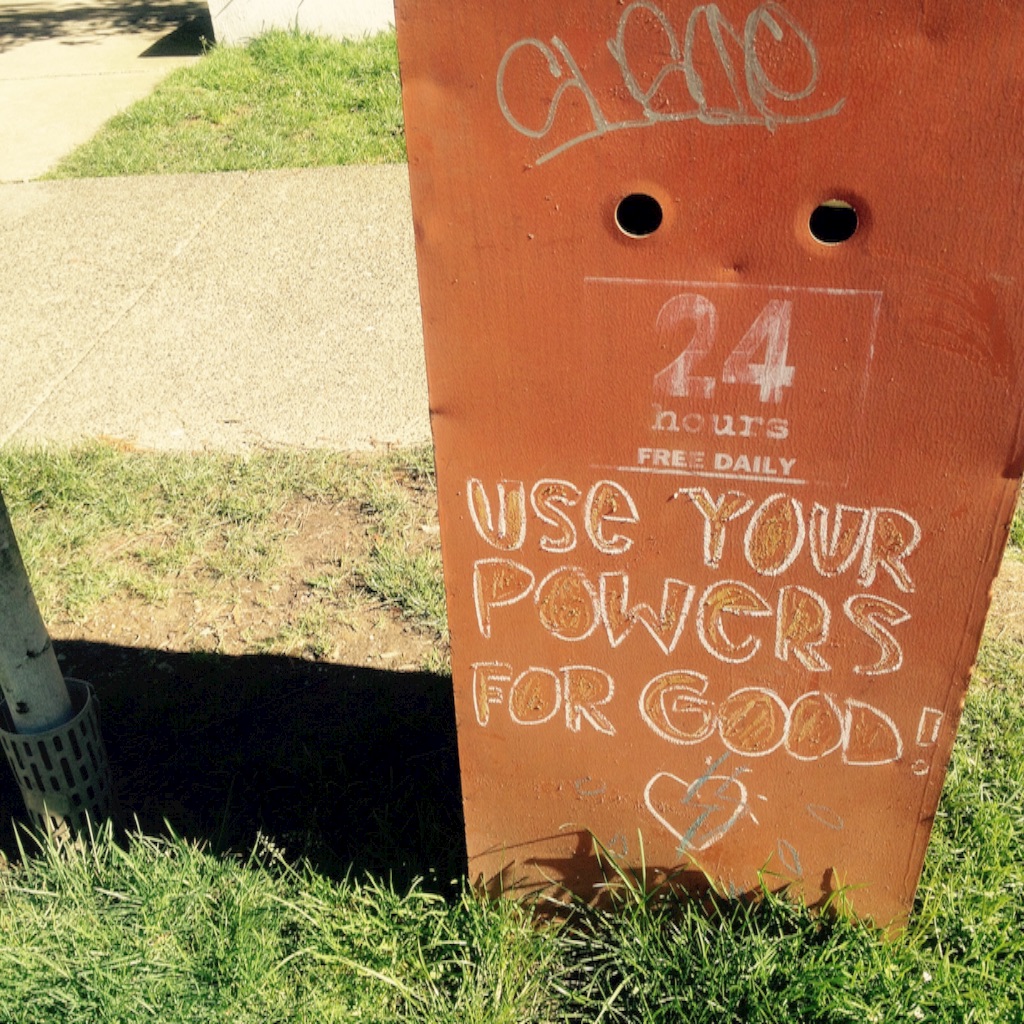 24
hours
FREE DAILY
USe YOUR
POWeRS
FOR GOOD!